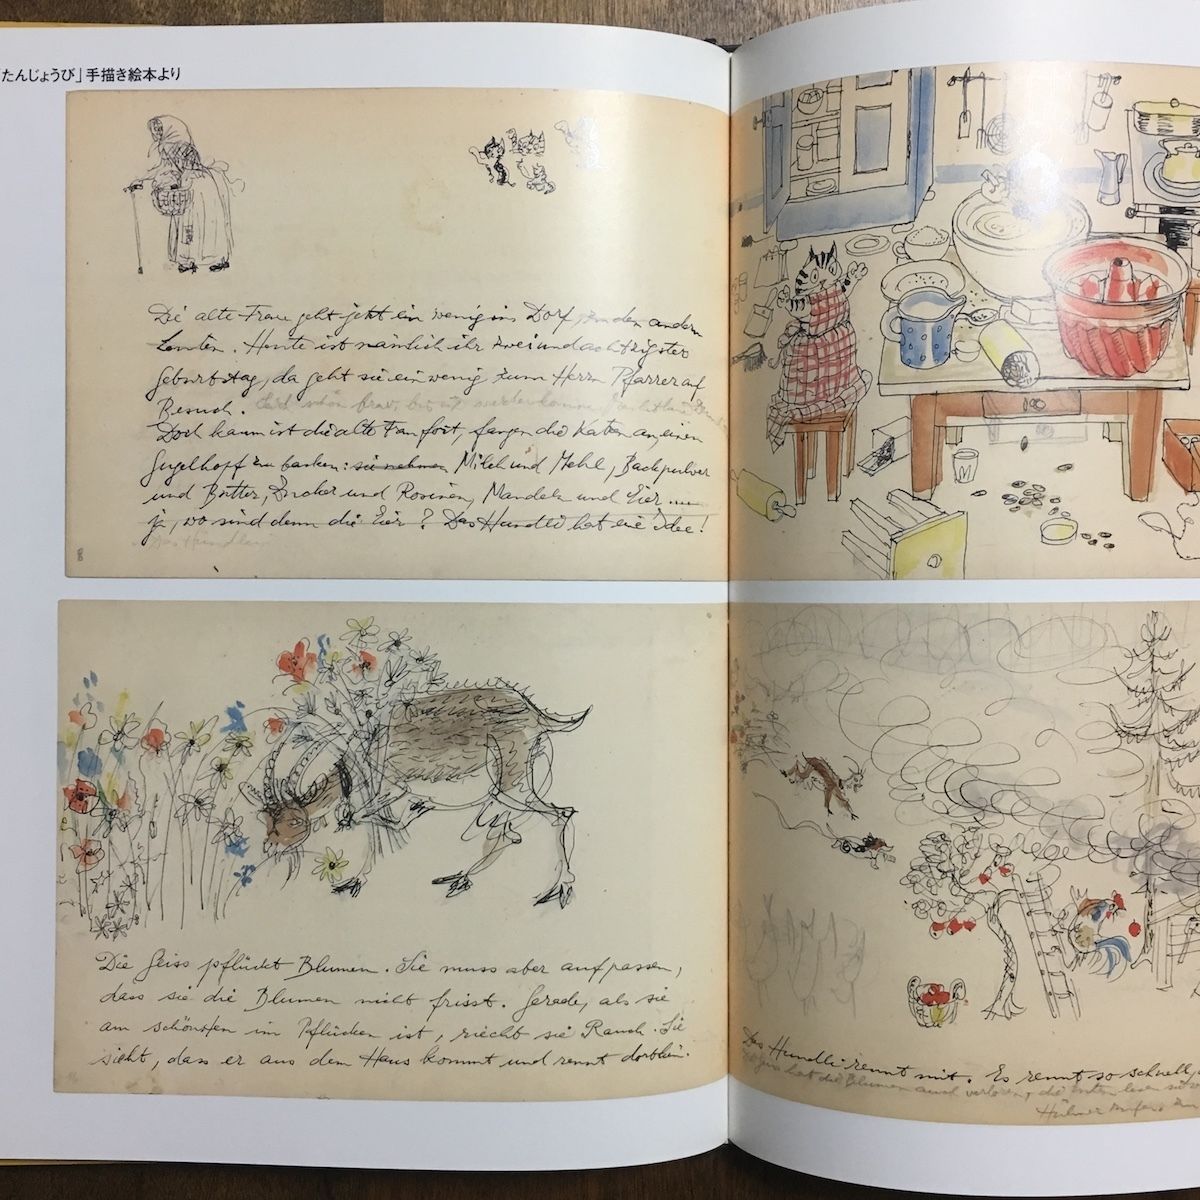 「たんじょうび」手描き絵本より
Die alte Frau geht jetzt ein wenig ins Dorf zu den andern
Leuten. Heute ist nämlich ihr zweiundachtzigster
Geburtstag, da geht sie ein wenig zum Herrn Pfarrer auf
Besuch.
Doch kaum ist die alte Frau fort, fangen die Katzen an, einen
Gugelhopf zu backen: sie nehmen Milch und Mehl, Backpulver
und Butter, Zucker und Rosinen, Mandeln und Eier .....
ja, wo sind denn die Eier? Das Hundli hat eine Idee!
Das Hündlein
Die Geiss pflückt Blumen. Sie muss aber aufpassen,
dass sie die Blumen nicht frisst. Gerade, als sie
am schönsten im Pflücken ist, riecht sie Rauch. Sie
sieht, dass er aus dem Haus kommt und rennt dorthin.
Das Hundli rennt mit. Es rennt so schnell,
hat die Blumen auch verloren, die
Hühner